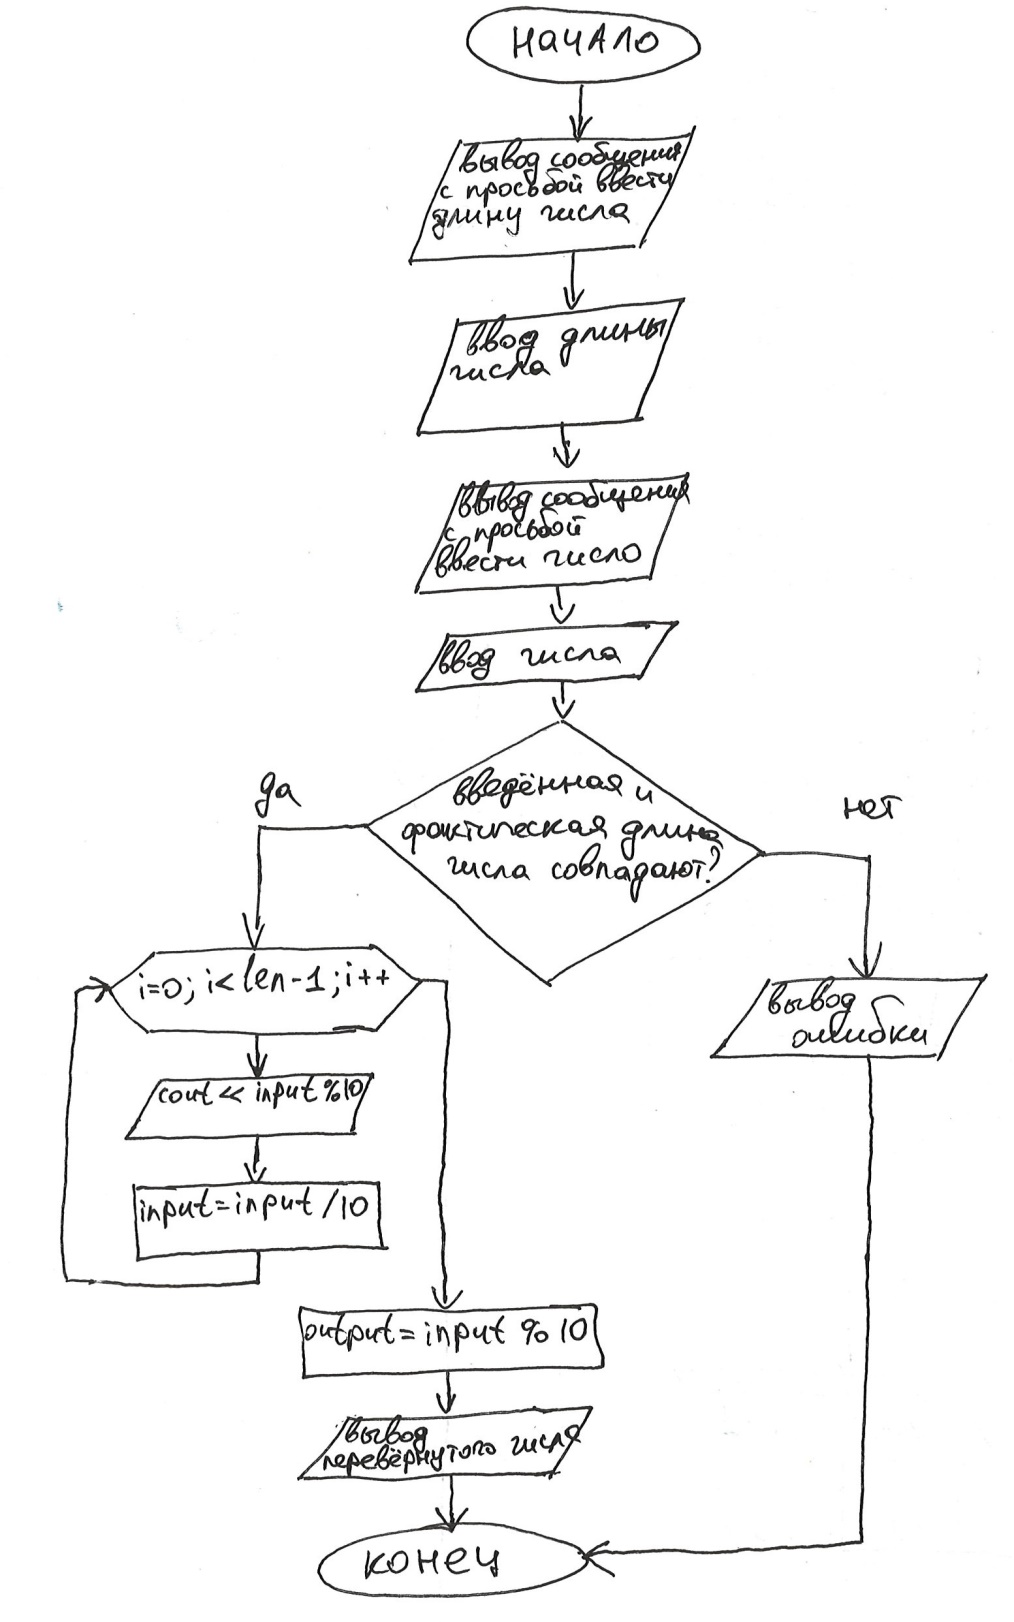 НАЧАЛО
вывод сообщения
с просьбой ввести
длину числа
ввод длины
числа
вывод сообщения
с просьбой
ввести число
ввод числа
введённая и
фактическая длина
числа совпадают?
да
нет
i=0; i<len-1; i++
вывод
ошибки
cout << input %10
input=input/10
output=input % 10
вывод
перевёрнутого числа
конец